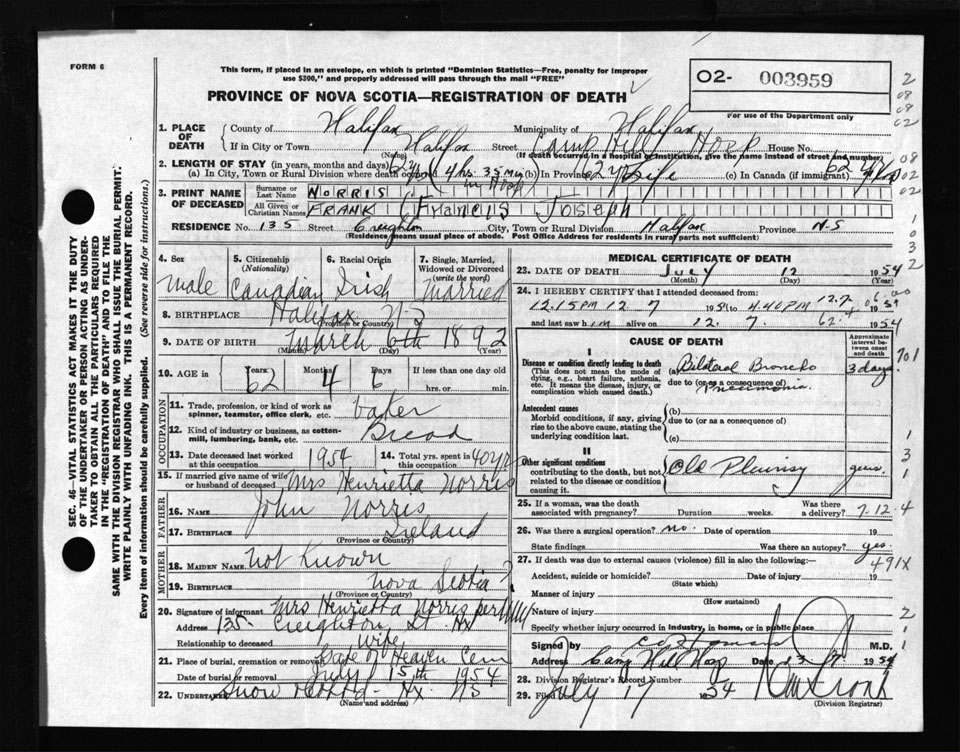 FORM 6
This form, if placed in an envelope, on which is printed "Dominion Statistics—Free, penalty for improper
use $300," and properly addressed will pass through the mail "FREE"
PROVINCE OF NOVA SCOTIA—REGISTRATION OF DEATH
O2- 003959
For use of the Department only
1. PLACE OF DEATH
County of Halifax Municipality of Halifax
If in City or Town Halifax Street Camp Hill Hosp House No.
(Name) (If death occurred in a hospital or institution, give the name instead of street and number)
2. LENGTH OF STAY (in years, months and days)
(a) In City, Town or Rural Division where death occurred 4 hrs. 35 min (b) In Province Life (c) In Canada (if immigrant)
in Hosp
3. PRINT NAME OF DECEASED
Surname or Last Name NORRIS
All Given or Christian Names FRANK (Francis Joseph
RESIDENCE No. 135 Street Creighton City, Town or Rural Division Halifax Province N-S
(Residence means usual place of abode. Post Office Address for residents in rural parts not sufficient)
4. Sex 5. Citizenship (Nationality) 6. Racial Origin 7. Single, Married, Widowed or Divorced (write the word)
male Canadian Irish Married
8. BIRTHPLACE Halifax N-S
(Province or Country)
9. DATE OF BIRTH March 6th 1892
(Month) (Day) (Year)
10. AGE in Years 62 Months 4 Days 6 If less than one day old
hrs. or min.
OCCUPATION
11. Trade, profession, or kind of work as spinner, teamster, office clerk, etc. baker
12. Kind of industry or business, as cotton-mill, lumbering, bank, etc. Bread
13. Date deceased last worked at this occupation 1954 14. Total yrs. spent in this occupation 40 yrs
15. If married give name of wife or husband of deceased Mrs Henrietta Norris
FATHER
16. NAME John Norris
17. BIRTHPLACE Ireland
(Province or Country)
MOTHER
18. MAIDEN NAME Not Known
19. BIRTHPLACE Nova Scotia ?
(Province or Country)
20. Signature of informant Mrs Henrietta Norris per
Address 135 Creighton St Hx
Relationship to deceased wife
21. Place of burial, cremation or removal Gate of Heaven Cem
Date of burial or removal July 15th 1954
22. UNDERTAKER Snow Hx NS
(Name and address)
MEDICAL CERTIFICATE OF DEATH
23. DATE OF DEATH July 12 1954
(Month) (Day)
24. I HEREBY CERTIFY that I attended deceased from:
12.15 PM 12 7 1954 to 4.40 PM 12.7
and last saw him alive on 12. 7. 1954
CAUSE OF DEATH
Approximate interval between onset and death
I
Disease or condition directly leading to death (a) Bilateral Broncho 3 days
(This does not mean the mode of dying, e.g., heart failure, asthenia, etc. It means the disease, injury, or complication which caused death.)
due to (or as a consequence of) Pneumonia.
Antecedent causes (b)
Morbid conditions, if any, giving rise to the above cause, stating the underlying condition last.
due to (or as a consequence of)
(c)
II
Other significant conditions contributing to the death, but not related to the disease or condition causing it.
Old Pleurisy years
25. If a woman, was the death associated with pregnancy? Duration weeks. Was there a delivery?
7.12.4
26. Was there a surgical operation? no. Date of operation 19
State findings Was there an autopsy? yes
27. If death was due to external causes (violence) fill in also the following:
491X
Accident, suicide or homicide? Date of injury 19
(State which)
Manner of injury
(How sustained)
Nature of injury
Specify whether injury occurred in industry, in home, or in public place
Signed by M.D.
Address Camp Hill Hosp Date 13 7 1954
28. Division Registrar's Record Number
29. Filed July 17 1954
(Division Registrar)
SEC. 46 VITAL STATISTICS ACT MAKES IT THE DUTY
OF THE UNDERTAKER OR PERSON ACTING AS UNDER-
TAKER TO OBTAIN ALL THE PARTICULARS REQUIRED
IN THE "REGISTRATION OF DEATH" AND TO FILE THE
SAME WITH THE DIVISION REGISTRAR WHO SHALL ISSUE THE BURIAL PERMIT.
WRITE PLAINLY WITH UNFADING INK. THIS IS A PERMANENT RECORD.
Every item of information should be carefully supplied. (See reverse side for instructions.)